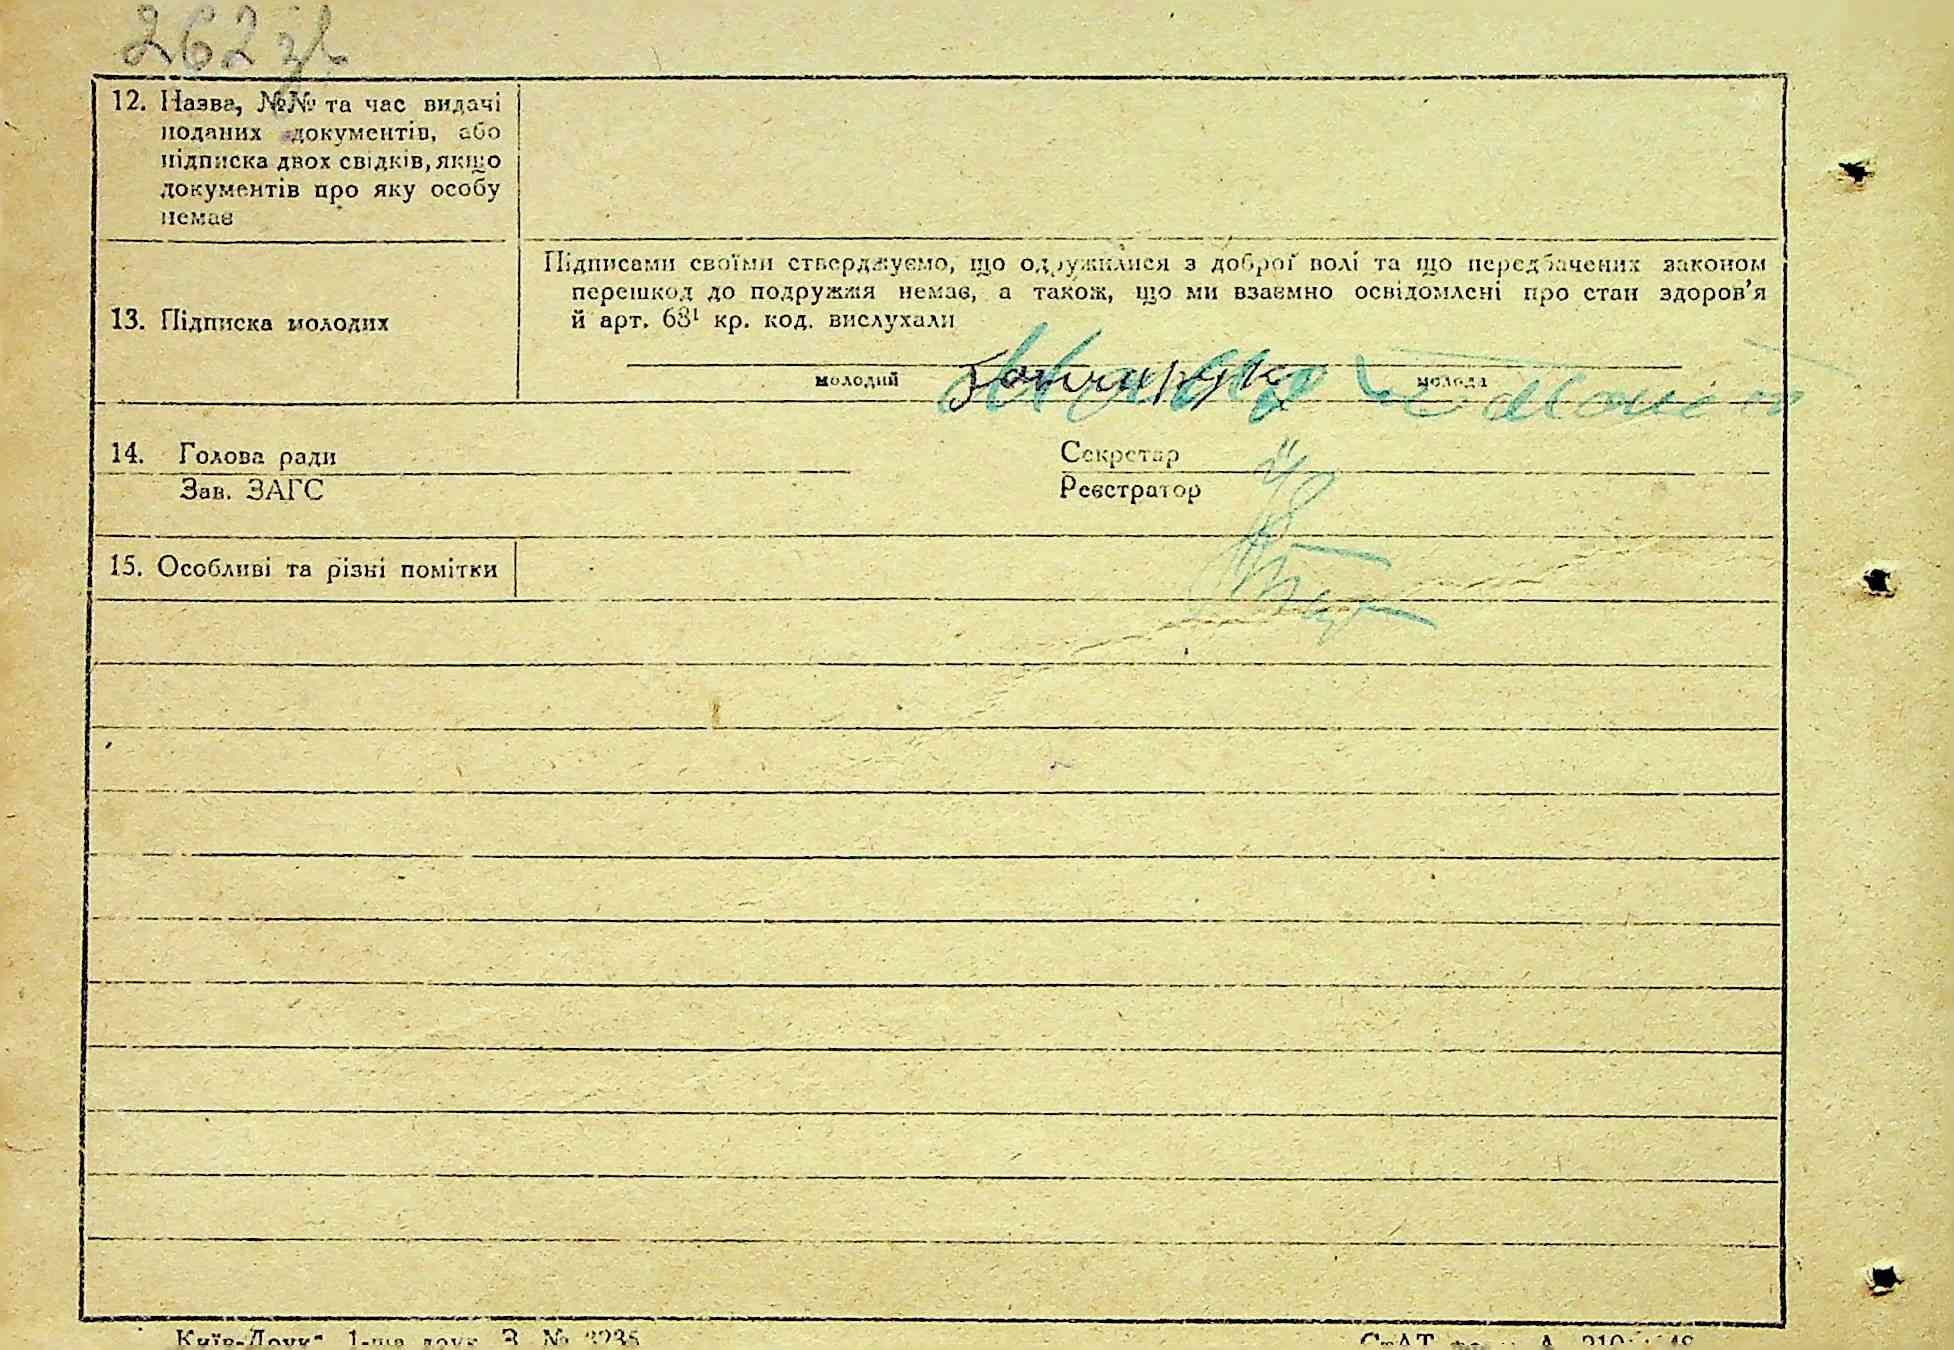 262 зв
12. Назва, №№ та час видачі
поданих документів, або
підписка двох свідків, якщо
документів про яку особу
немає
13. Підписка молодих
Підписами своїми стверджуємо, що одружилися з доброї волі та що передбачених законом
перешкод до подружжя немає, а також, що ми взаємно освідомлені про стан здоров'я
й арт. 68¹ кр. код. вислухали
молодий
молода
14. Голова ради
Зав. ЗАГС
Секретар
Реєстратор
15. Особливі та різні помітки
Київ-Друк" 1-ша друк. З. № 3235